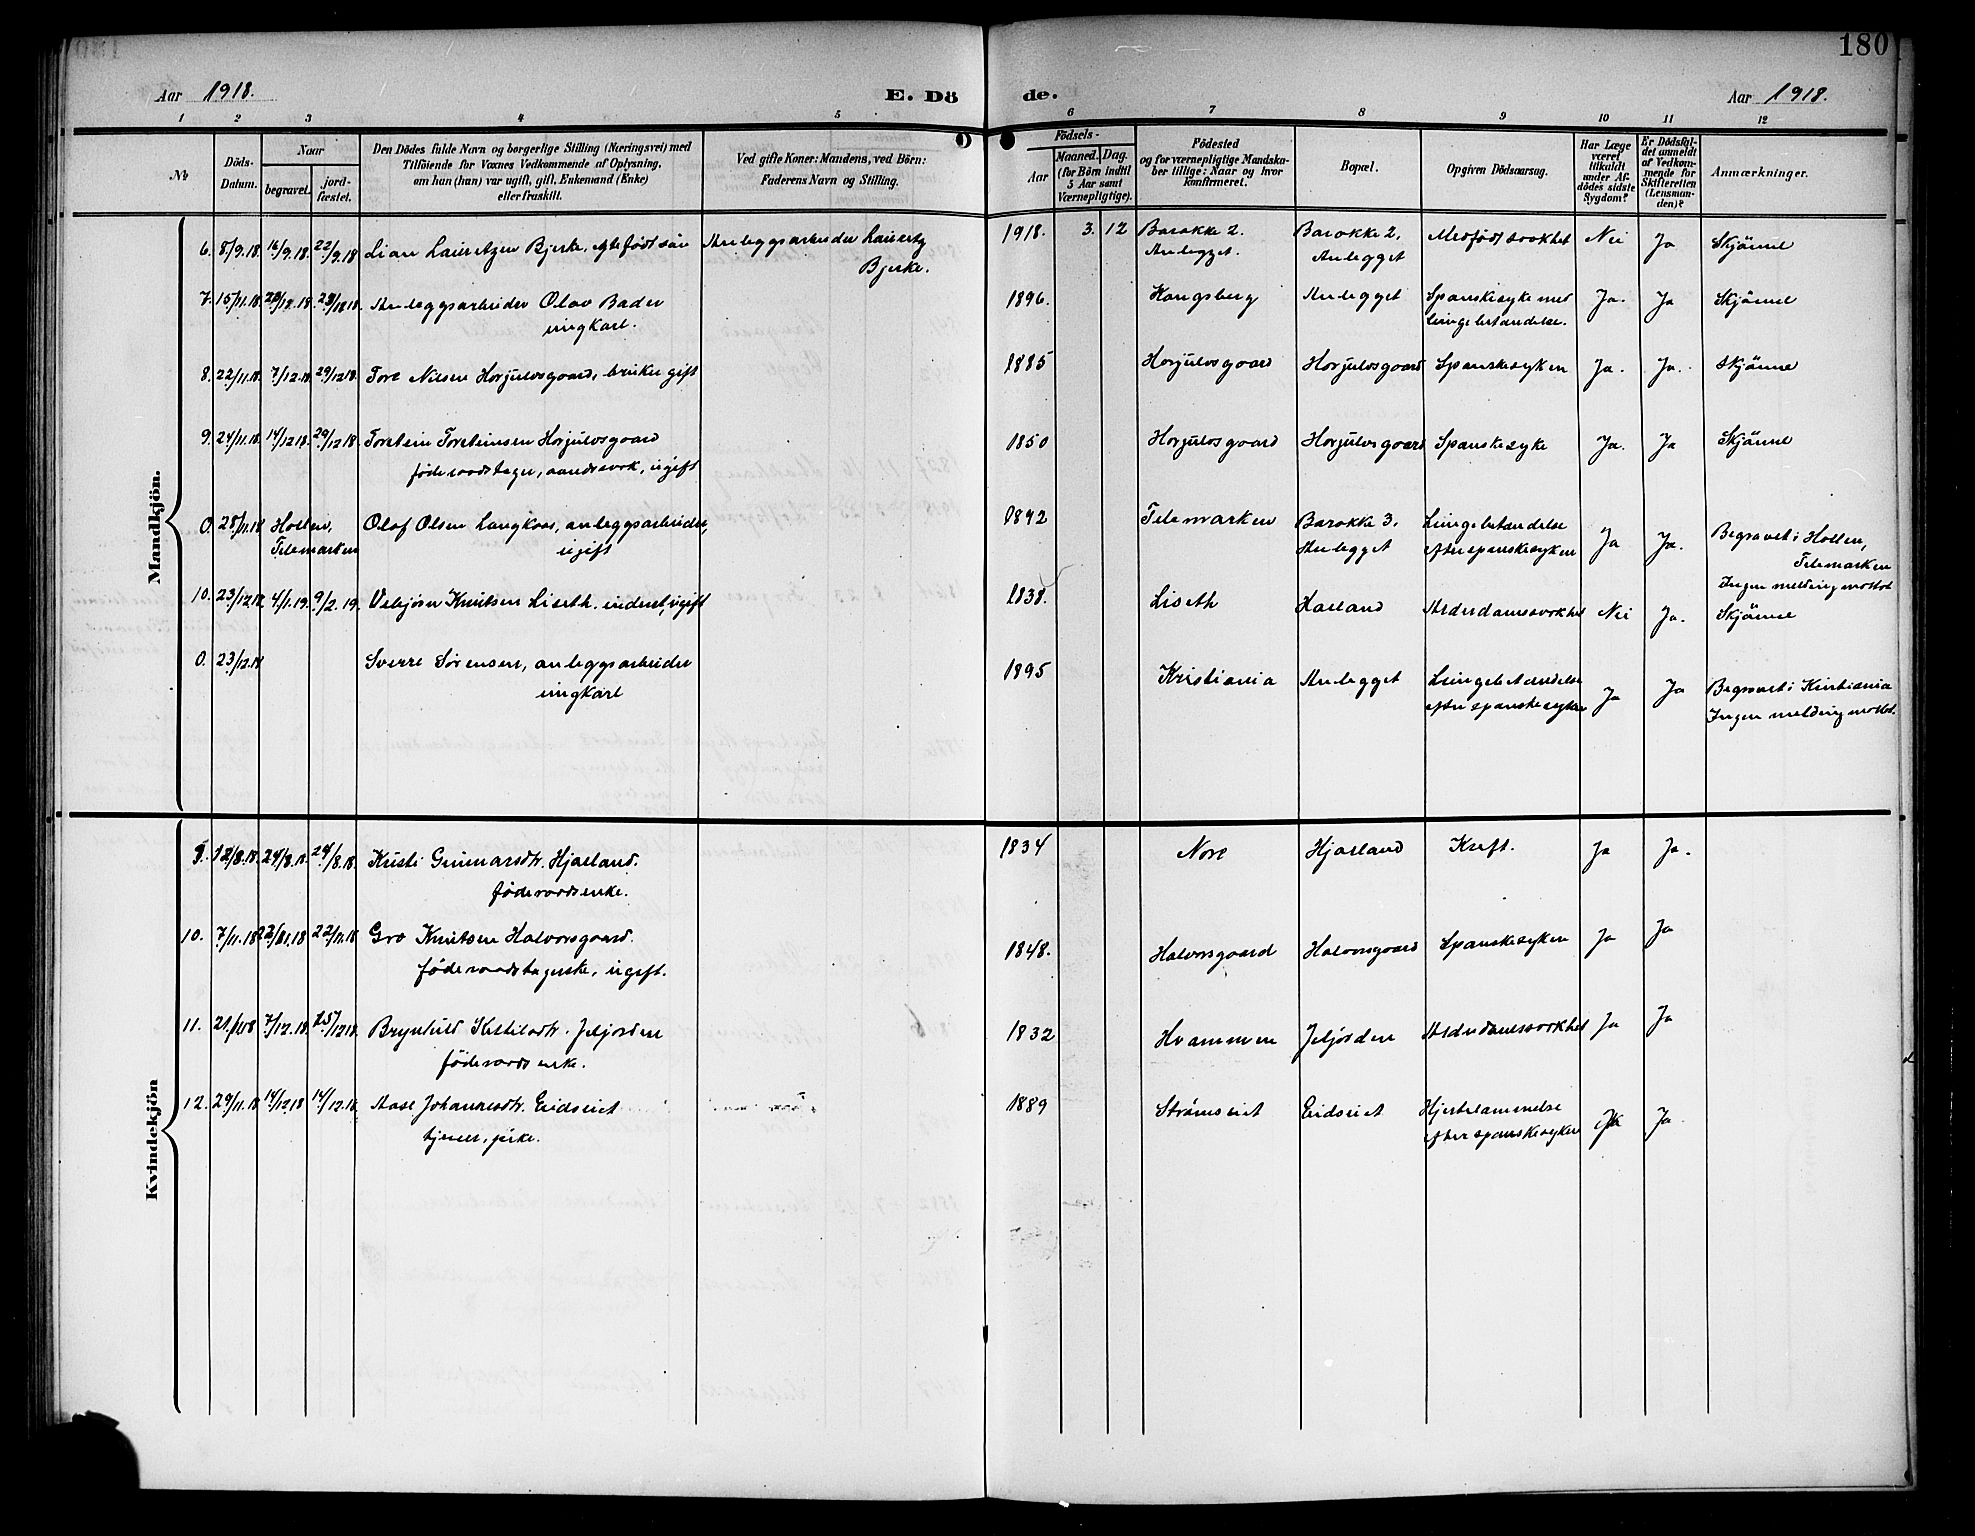 180
Aar 1918. E. Dö de. Aar 1918.
1 2 3 4 5 6 7 8 9 10 11 12
No
Döds-
Datum.
Naar
begravet.
jord-
fæstet.
Den Dödes fulde Navn og borgerlige Stilling (Næringsvei) med
Tilföiende for Voxnes Vedkommende af Oplysning,
om han (hun) var ugift, gift, Enkemand (Enke)
eller fraskilt.
Ved gifte Koner: Mandens, ved Börn:
Faderens Navn og Stilling.
Födsels-
Aar
Maaned. Dag.
(for Börn indtil
5 Aar samt
Værnepligtige).
Födested
og for værnepligtige Mandska-
ber tillige: Naar og hvor
konfirmeret.
Bopæl.
Opgiven Dödsaarsag.
Har Læge
været
tilkaldt
under Af-
dödes sidste
Sygdom?
Er Dödsfal-
det anmeldt
af Vedkom-
mende for
Skifteretten
(Lensman-
den)?
Anmærkninger.
Mandkjön.
6. 8/9.18. 16/9.18. 22/9.18 Lian Lauretzen Bjerke, egtefödt sön Anleggsarbeider Lauretz 1918. 3. 12 Barakke 2. Barakke 2. Medfödt svakhet Nei Ja Skjönne
Bjerke. Anlegget. Anlegget
7. 15/11.18. 28/12.18. Anleggsarbeider Olav Bader 1896. Kongsberg Anlegget Spanskesyke med Ja. Ja Skjönne
ungkarl. lungebetændelse.
8. 22/11.18. 7/12.18. 29/12.18. Tore Nilsen Horjulvsgaard, bruker gift 1885 Horjulvsgaard Horjulvsgaard Spanskesyken Ja. Ja. Skjönne
9. 24/11.18. 14/12.18. 29/12.18. Torstein Torsteinsen Horjulvsgaard 1850 Horjulvsgaard Horjulvsgaard Spanskesyke Ja. Ja Skjönne
föderaadstager, aandssvak, ugift
0. 28/11.18 Hollen, Olaf Olsen Langkaas, anleggsarbeider, 1892 Telemarken Barakke 3. Lungebetændelse Ja Ja. Begravet i Hollen,
Telemarken ugift Anlegget efter spanskesyken Telemarken
Ingen melding mottat
10. 23/12.18. 4/1.19. 9/2.19. Vebjörn Knutsen Liseth. inderst, ugift 1838. Liseth Haaland Alderdomssvakhet Nei Ja. Skjönne
0. 23/12.18 Sverre Sörensen, anleggsarbeider 1895 Kristiania Anlegget Lungebetændelse Ja Ja Begravet i Kristiania
ungkarl efter spanskesyken Ingen melding mottat.
Kvindekjön
9. 12/8.18. 24/8.18. 24/8.18. Kristi Gunnarsdtr. Hjaaland. 1834 Nore Hjaaland Kreft. Ja Ja.
föderaadsenke.
10. 7/11.18 22/11.18 22/11.18 Gro Knutsen Halvorsgaard. 1848. Halvorsgaard Halvorsgaard Spanskesyken Ja Ja
föderaadstagerske, ugift.
11. 21/11.18 7/12.18 Brynhild Ketilsdtr. Jeljorden 1832 Hvammen Jeljorden Alderdomssvakhet Ja Ja
föderaadsenke.
12. 29/11.18 14/12.18 14/12.18 Aase Johannesdtr. Eidseiet 1889 Strömseiet Eidseiet Hjertelammelse Ja Ja
tjener, pike. efter spanskesyken